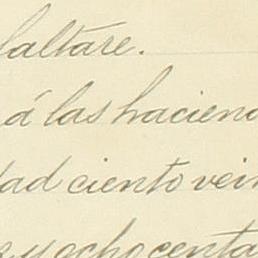 faltare.
á las haciend
dad ciento vein
y ochocenta